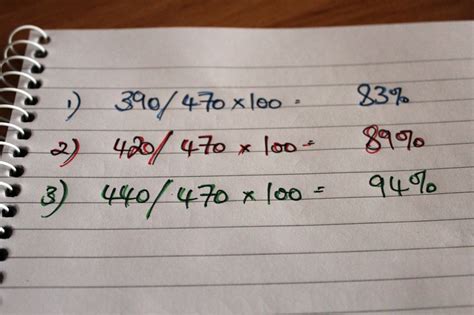 1) 390/470 x 100 = 83%
2) 420/ 470 x 100 = 89%
3) 440/ 470 x 100 = 94%